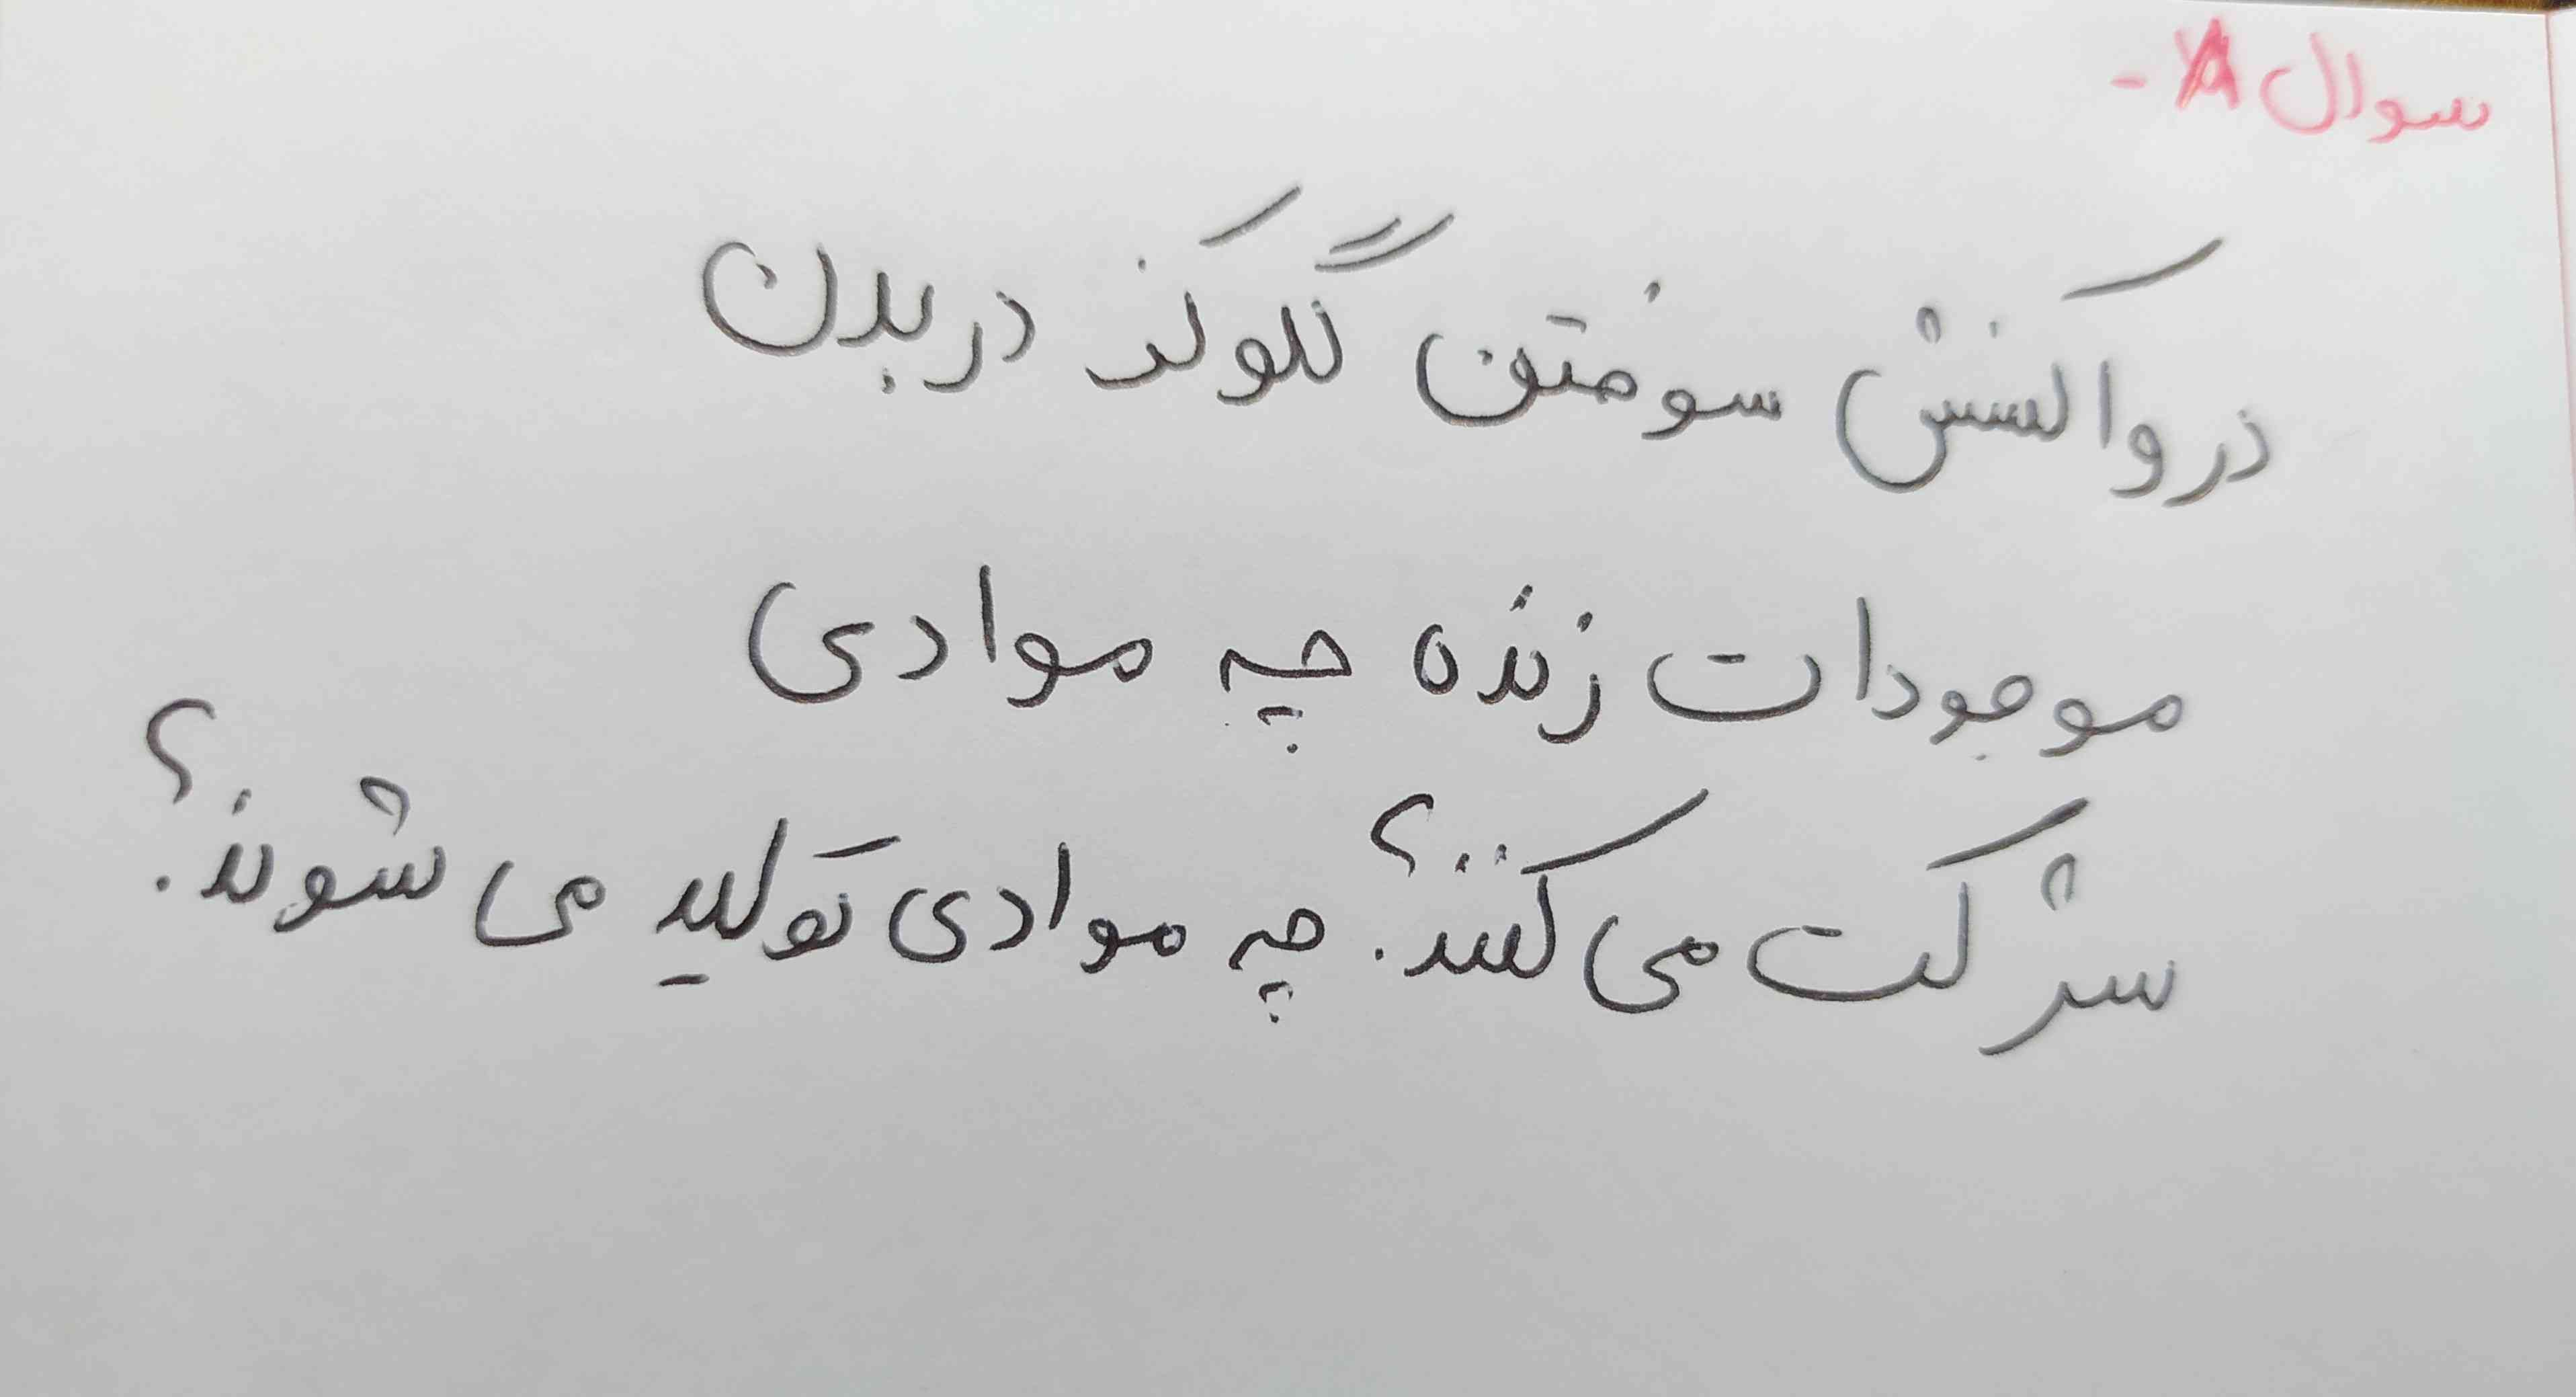 سوال ۸ -
در واکنش سوختن گلوکز در بدن
موجودات زنده چه موادی
شرکت می کنند؟ چه موادی تولید می شوند؟